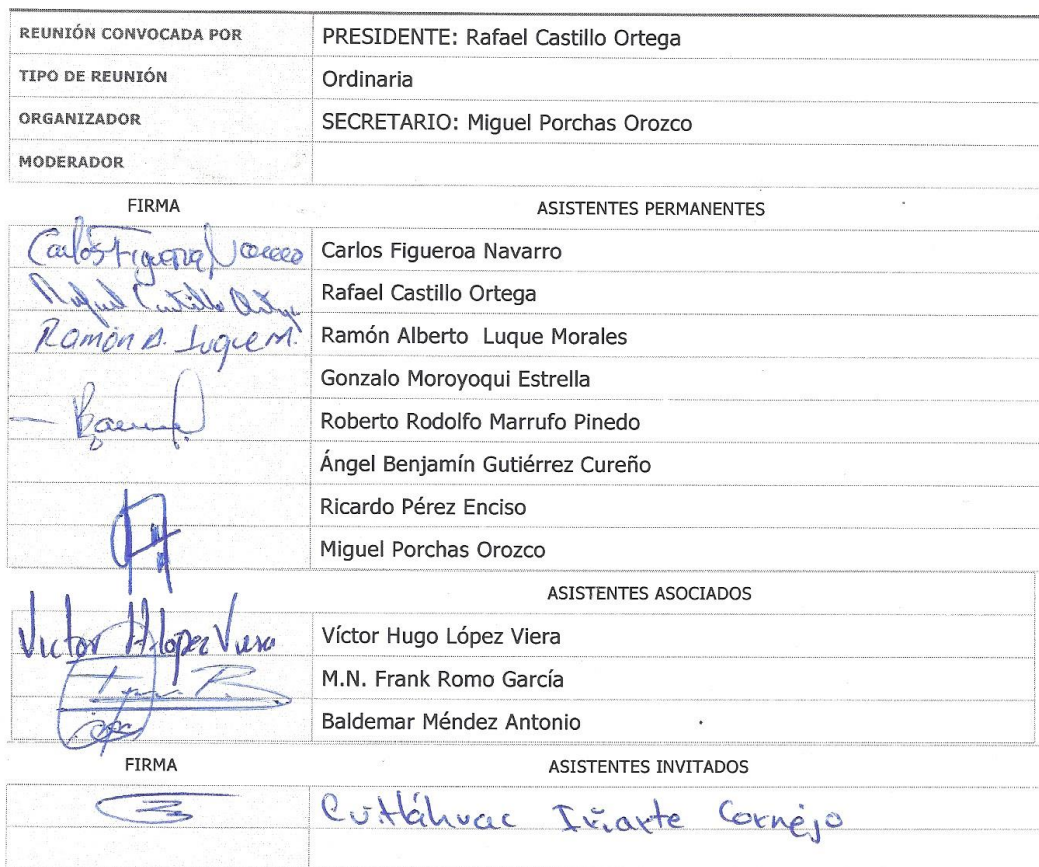 REUNIÓN CONVOCADA POR PRESIDENTE: Rafael Castillo Ortega
TIPO DE REUNIÓN Ordinaria
ORGANIZADOR SECRETARIO: Miguel Porchas Orozco
MODERADOR
FIRMA ASISTENTES PERMANENTES
Carlos Figueroa Navarro Carlos Figueroa Navarro
Rafael Castillo Ortega Rafael Castillo Ortega
Ramón A. Luque M. Ramón Alberto Luque Morales
Gonzalo Moroyoqui Estrella
Roberto Rodolfo Marrufo Pinedo
Ángel Benjamín Gutiérrez Cureño
Ricardo Pérez Enciso
Miguel Porchas Orozco
ASISTENTES ASOCIADOS
Victor H López Viera Víctor Hugo López Viera
M.N. Frank Romo García
Baldemar Méndez Antonio
FIRMA ASISTENTES INVITADOS
Cuitláhuac Iriarte Cornejo